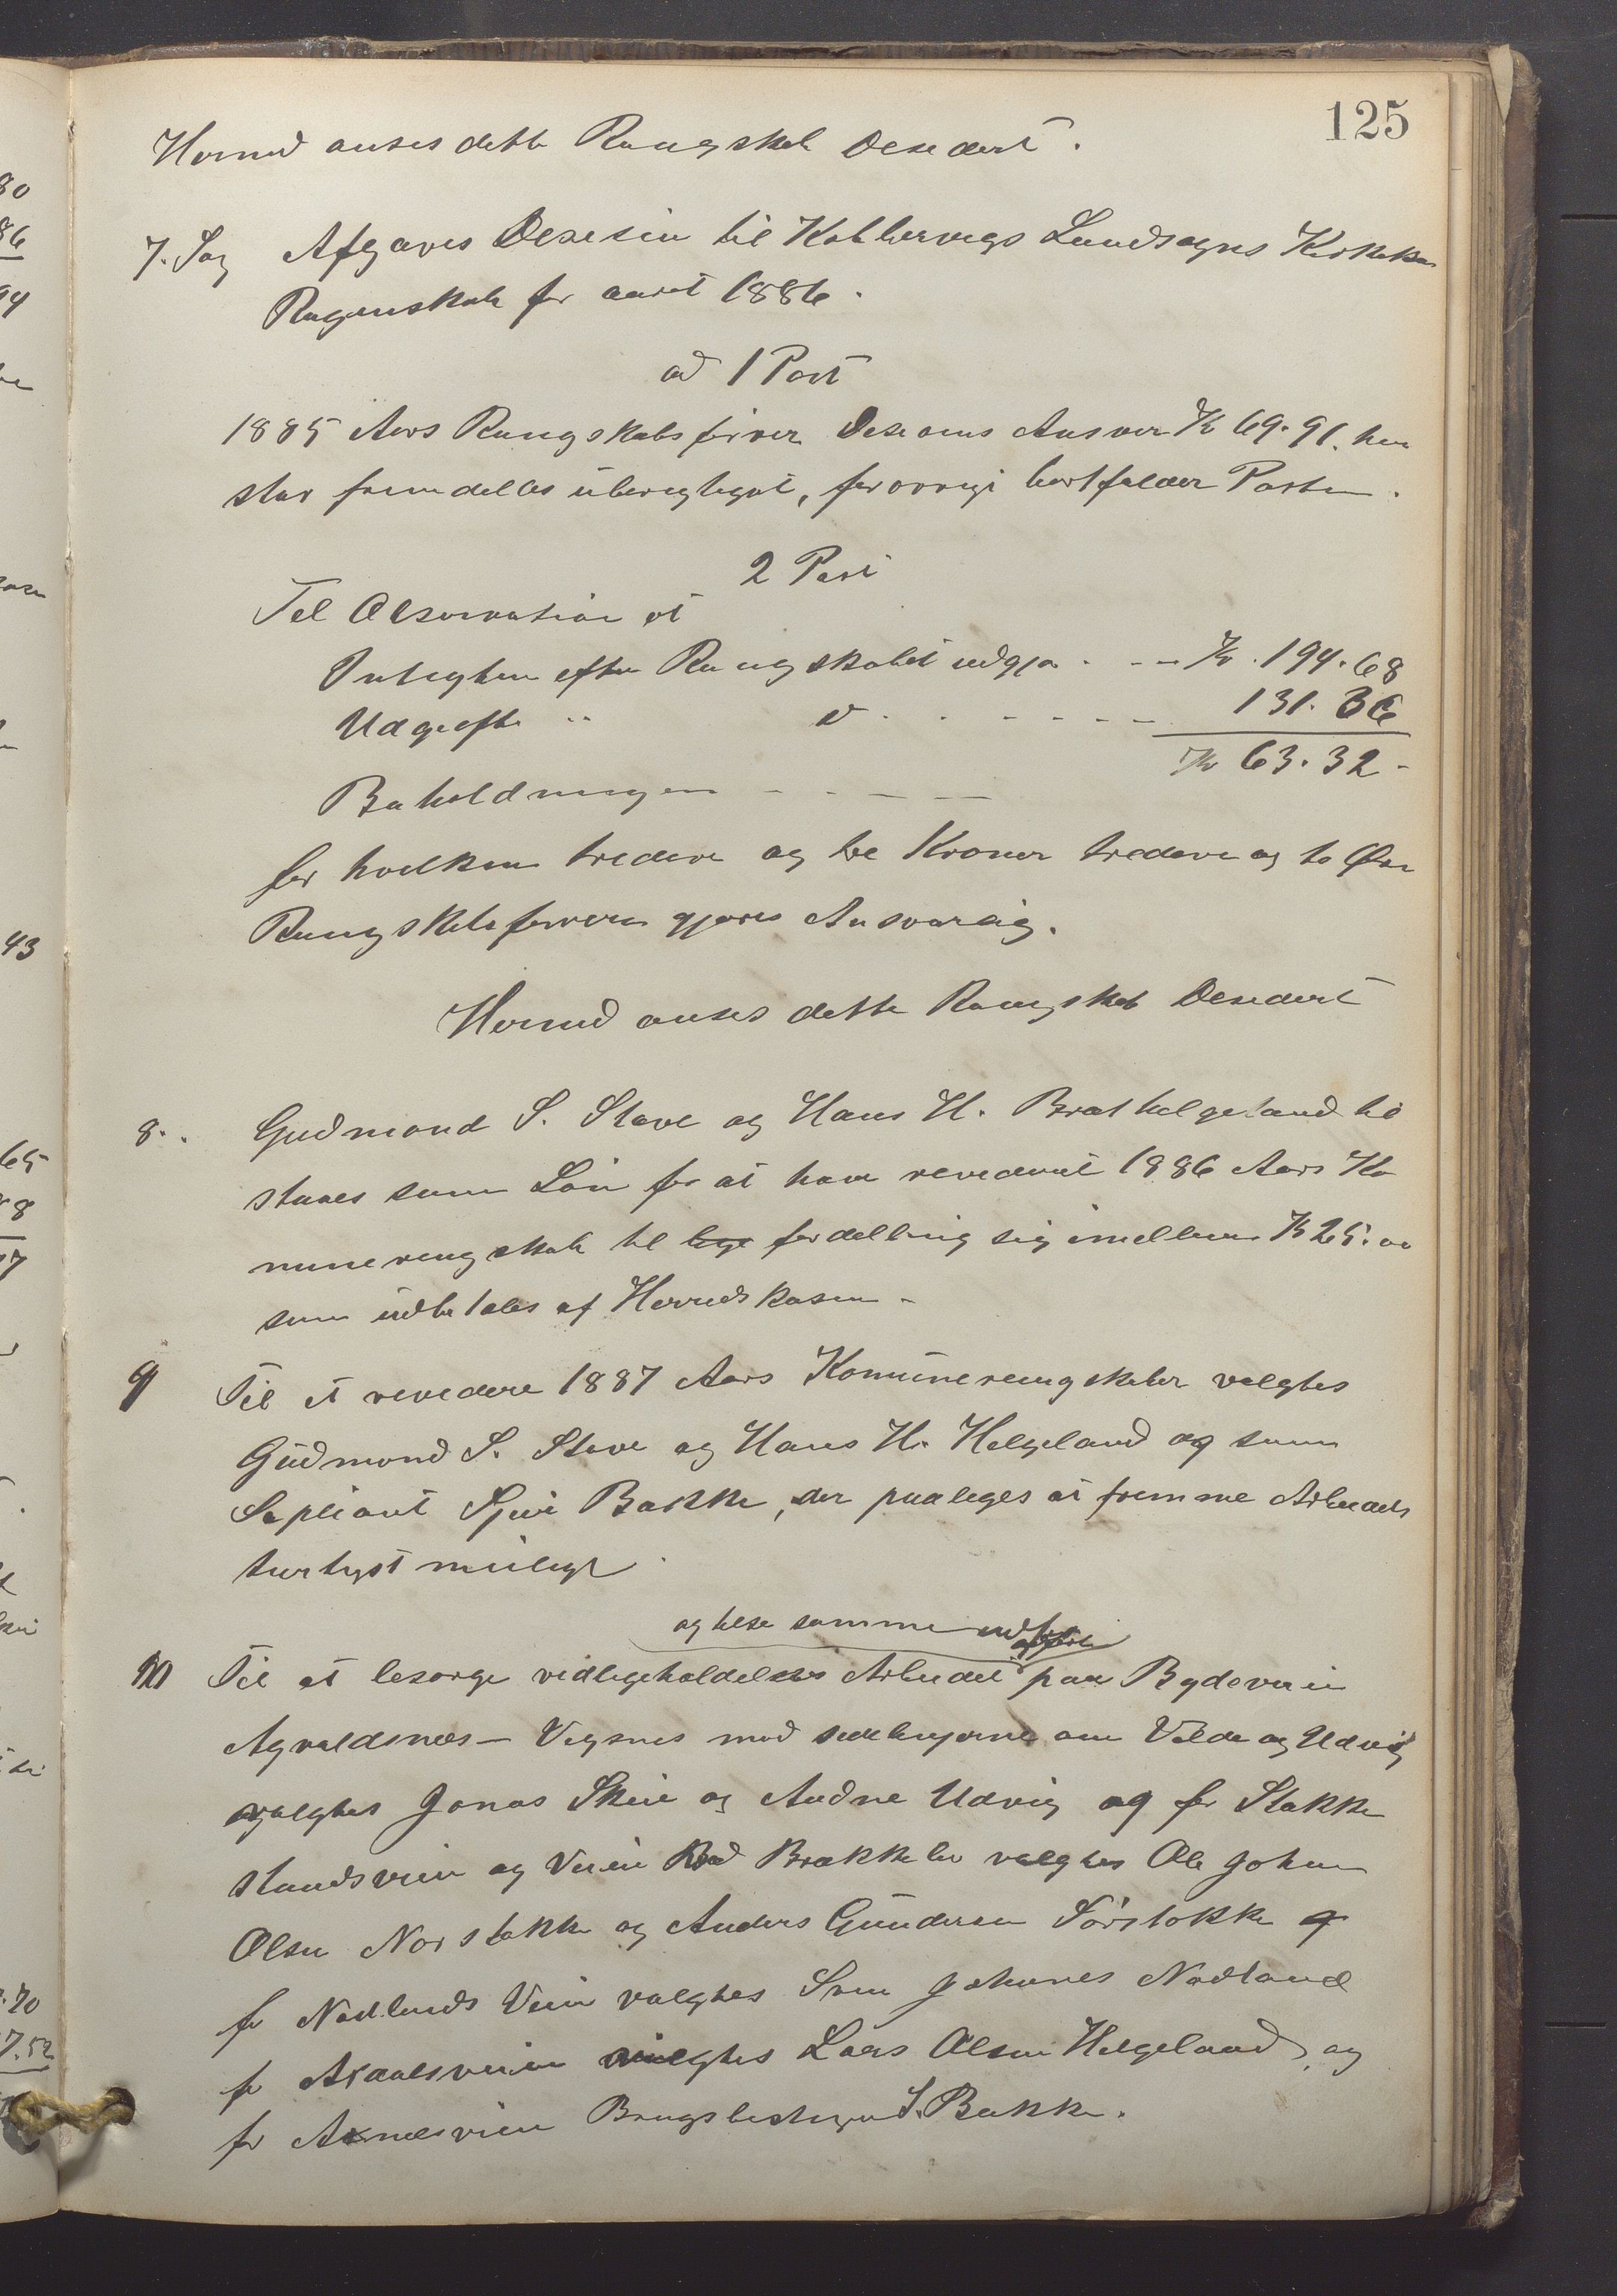 125
Hermed anses dette Rængskab Desedert.
7. Sag Afgaves Desesion til Kobbervigs Landsogns Kirkekas
Regenskab for aaret 1886.
ad 1 Post
1885 Aars Rængskabsfører Desesions Ansvar Kr 69.91. hen
staar fremdelles uberegtiget, forøvrigt bortfalder Posten.
2 Post
Tel Observation at
Integhten efter Rængskabet udgjør . - - Kr. 194.68
Udgifte " d . . - - - - - 131.36
Kr 63.32 -
Beholdningen - - - - -
for hvilken tredeve og tre Kroner tredeve og to Øre
Rængskabsføreren gjøres Ansvarlig.
Hermed anses dette Rængskab Desedert
8. . Gudmond S. Stave og Hans H. Brathelgeland til
staaes som Løn for at have revederet 1886 Aars Ko
munerengskab til lige fordelling sig imellem Kr 25.00
som udbetales af Herredskasen -
9 Til at revedere 1887 Aars Komunerengskaber valgtes
Gudmond S. Stave og Hans H. Helgeland og som
Supliant Sjur Bakke, der paaleges at fremme Arbeidet
hurtigst muligt.
og lese samme
10 Til at besørge vedligeholdelses Arbeidet paa Bydeveien
Agvaldsnes - Vigsnes med sidelinjerne om Velde og Udvig
valgtes Jonas Skeie og Audne Udvig og for Stakke
standsveien og Veien Bø Brekkelv valgtes Ole Johan
Olsen Norstokke og Anders Gundersen Sørstokke og
for Nødlands Veien valgtes Sven Johanes Nødland
for Aadalsveien valgtes Lars Olsen Helgeland, og
for Arnesveien Brugsbestyrer S. Bakke.